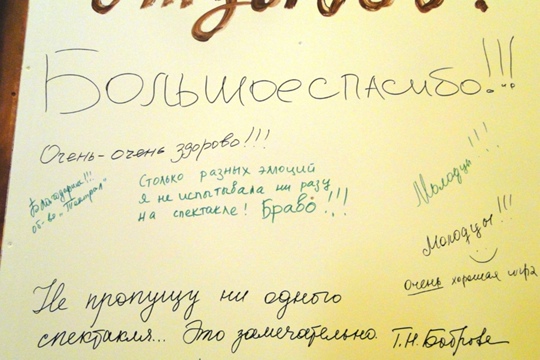 Большое спасибо!!!
Очень-очень здорово!!!
Благодарна!!!
об-во "Театрал"
Столько разных эмоций
я не испытывала ни разу
на спектакле! Браво!!!
Молодцы!!!
Молодцы!!!
очень хорошая игра
Не пропущу ни одного
спектакля... Это замечательно. Т.Н. Боброва